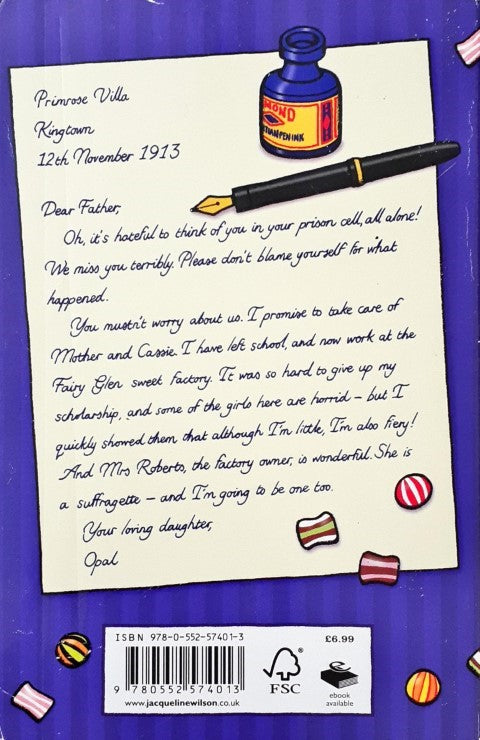 MOND
Primrose Villa
Kingtown
12th November 1913
Dear Father,
Oh, it's hateful to think of you in your prison cell, all alone!
We miss you terribly. Please don't blame yourself for what
happened.
You mustn't worry about us. I promise to take care of
Mother and Cassie. I have left school, and now work at the
Fairy Glen sweet factory. It was so hard to give up my
scholarship, and some of the girls here are horrid – but I
quickly showed them that although I'm little, I'm also fiery!
And Mrs Roberts, the factory owner, is wonderful. She is
a suffragette – and I'm going to be one too.
Your loving daughter,
Opal
ISBN 978-0-552-57401-3
9 780552 574013
www.jacquelinewilson.co.uk
FSC
®
£6.99
ebook
available